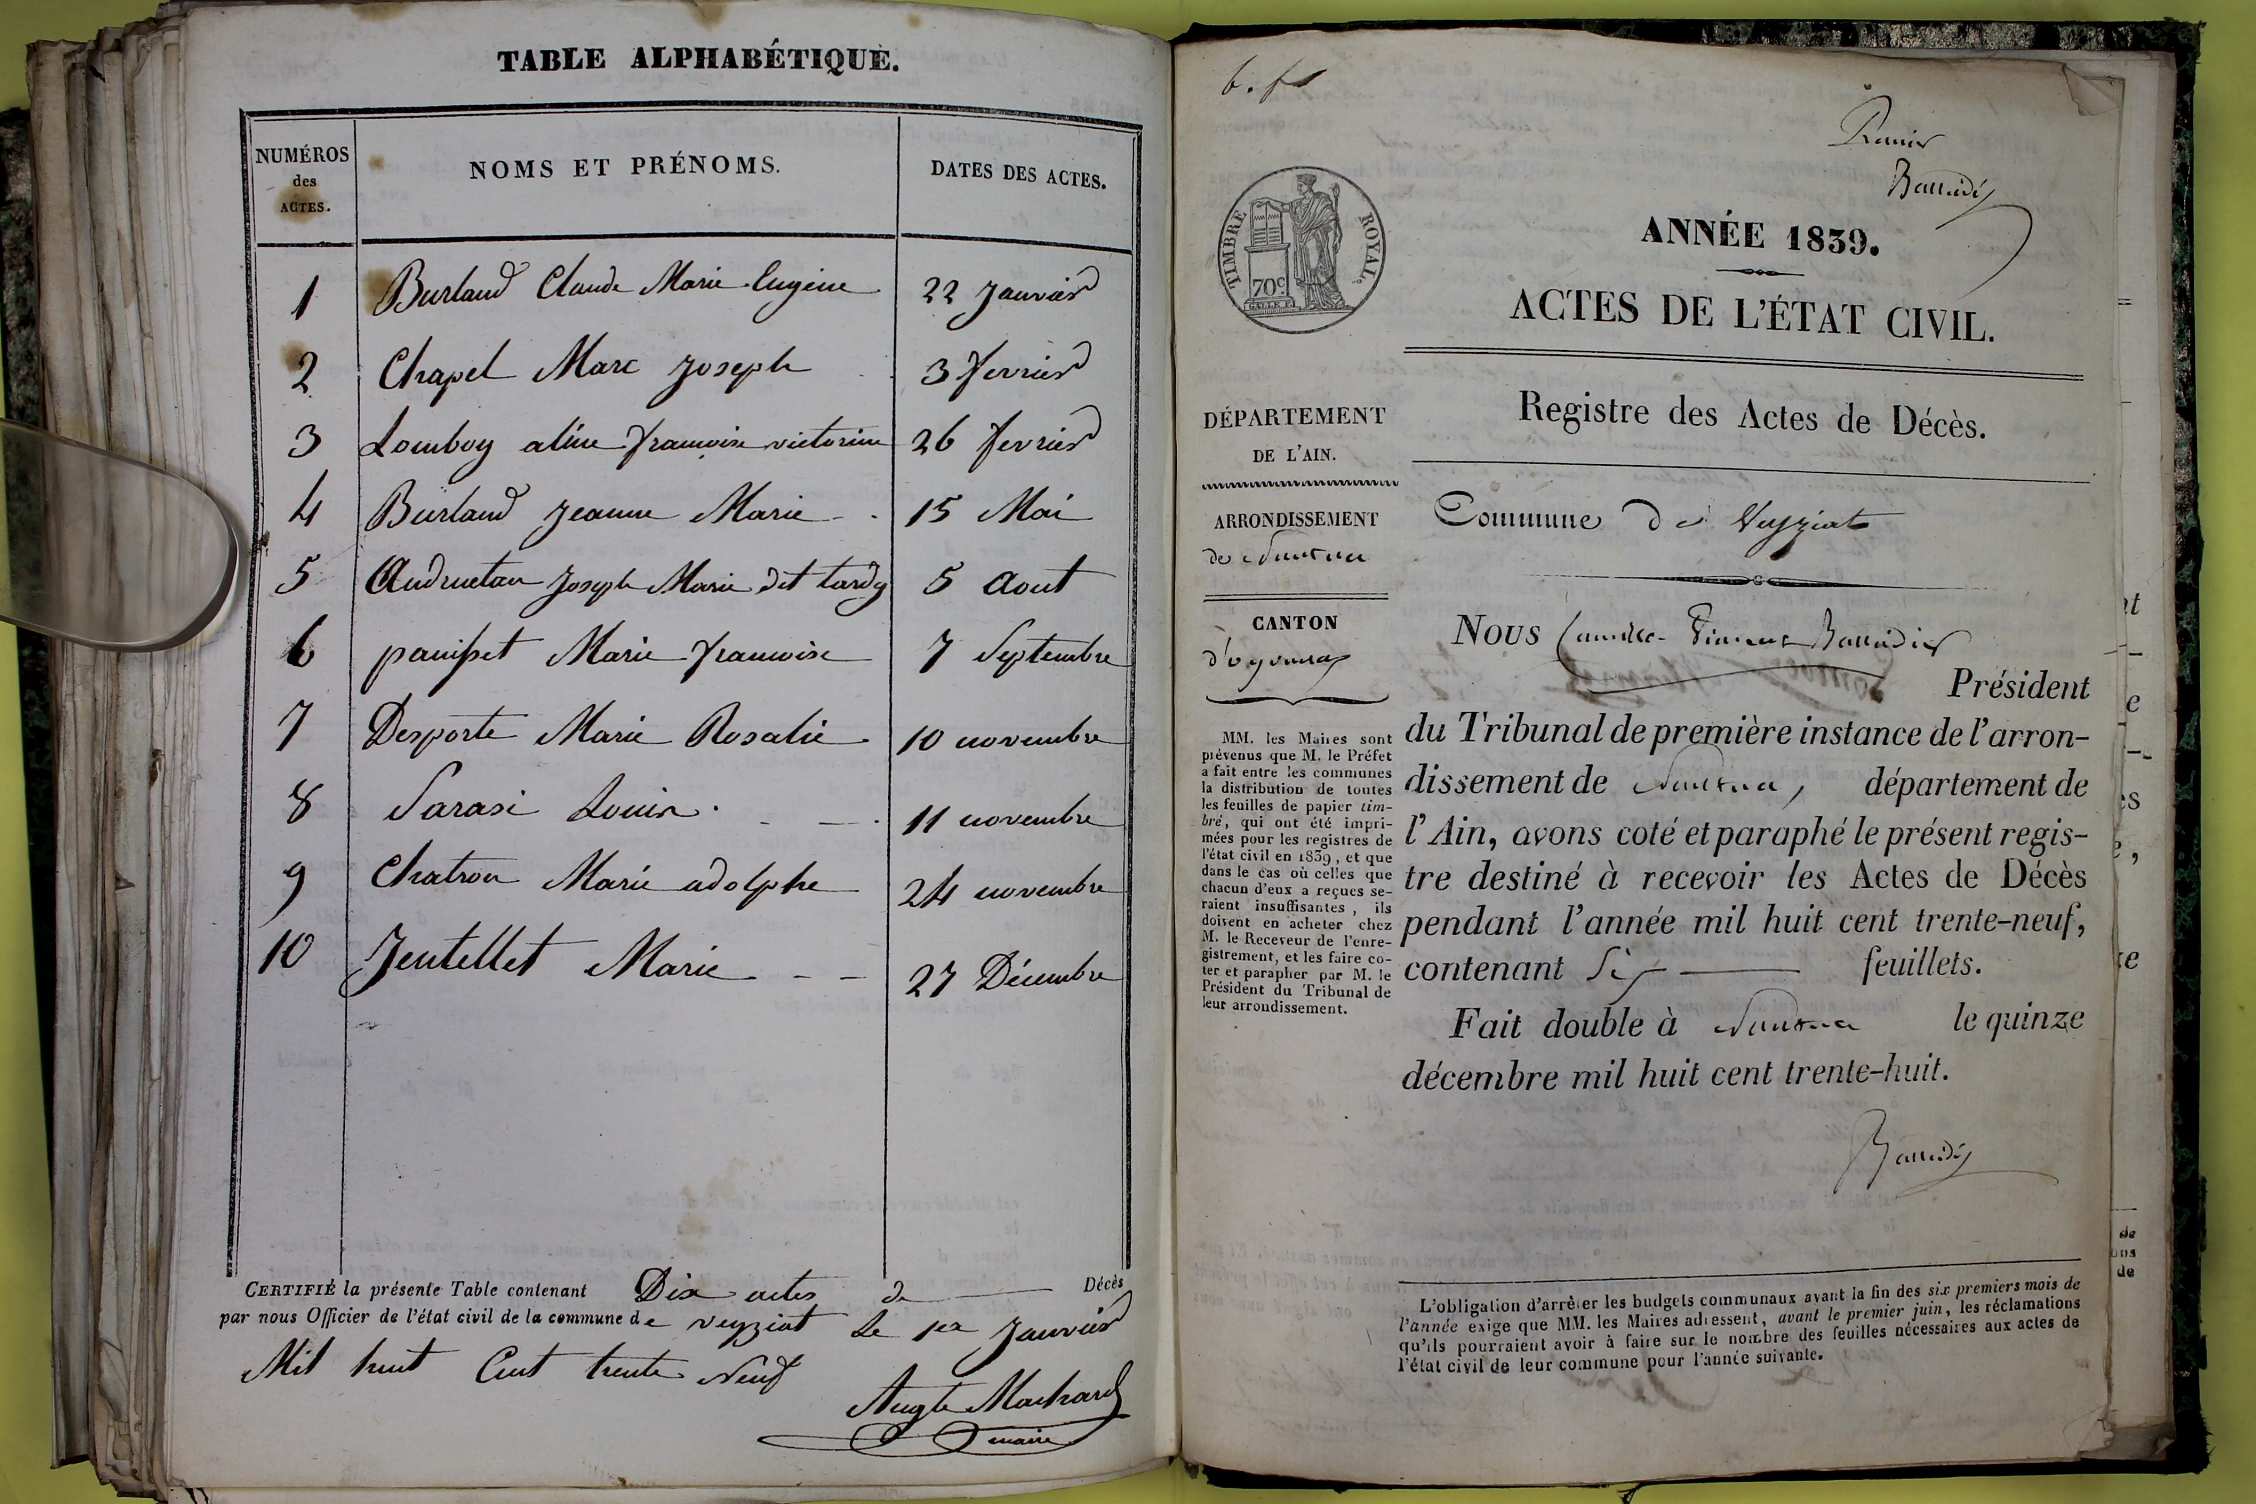 TABLE ALPHABÉTIQUE.
NUMÉROS
des
ACTES.
NOMS ET PRÉNOMS.
DATES DES ACTES.
1 Burland Claude Marie Eugene 22 Janvier
2 Chapel Marc Joseph 3 fevrier
3 Lomboy aline francoise victorine 26 fevrier
4 Burland Jeanne Marie 15 Mai
5 Andruetan Joseph Marie dit tardy 5 Aout
6 panisset Marie francoise 7 Septembre
7 Desporte Marie Rosalie 10 novembre
8 Sarasi Louis 11 novembre
9 Chatron Marie adolphe 24 novembre
10 Jentellet Marie 27 Décembre
CERTIFIÉ la présente Table contenant Dix actes de Décès
par nous Officier de l'état civil de la commune de veyziat Le 1er Janvier
Mil huit Cent trente Neuf
Augte Machard
maire
6. fts
Premier
TIMBRE ROYAL.
70c
ANNÉE 1839.
ACTES DE L'ÉTAT CIVIL.
Registre des Actes de Décès.
DÉPARTEMENT
DE L'AIN.
ARRONDISSEMENT
de Nantua
CANTON
d'oyonnax
MM. les Maires sont
prévenus que M. le Préfet
a fait entre les communes
la distribution de toutes
les feuilles de papier tim-
bré, qui ont été impri-
mées pour les registres de
l'état civil en 1839, et que
dans le cas où celles que
chacun d'eux a reçues se-
raient insuffisantes, ils
doivent en acheter chez
M. le Receveur de l'enre-
gistrement, et les faire co-
ter et parapher par M. le
Président du Tribunal de
leur arrondissement.
Commune de Veyziat
Nous Camille
Président
du Tribunal de première instance de l'arron-
dissement de Nantua, département de
l'Ain, avons coté et paraphé le présent regis-
tre destiné à recevoir les Actes de Décès
pendant l'année mil huit cent trente-neuf,
contenant Six feuillets.
Fait double à Nantua le quinze
décembre mil huit cent trente-huit.
L'obligation d'arrêter les budgets communaux avant la fin des six premiers mois de
l'année exige que MM. les Maires adressent, avant le premier juin, les réclamations
qu'ils pourraient avoir à faire sur le nombre des feuilles nécessaires aux actes de
l'état civil de leur commune pour l'année suivante.